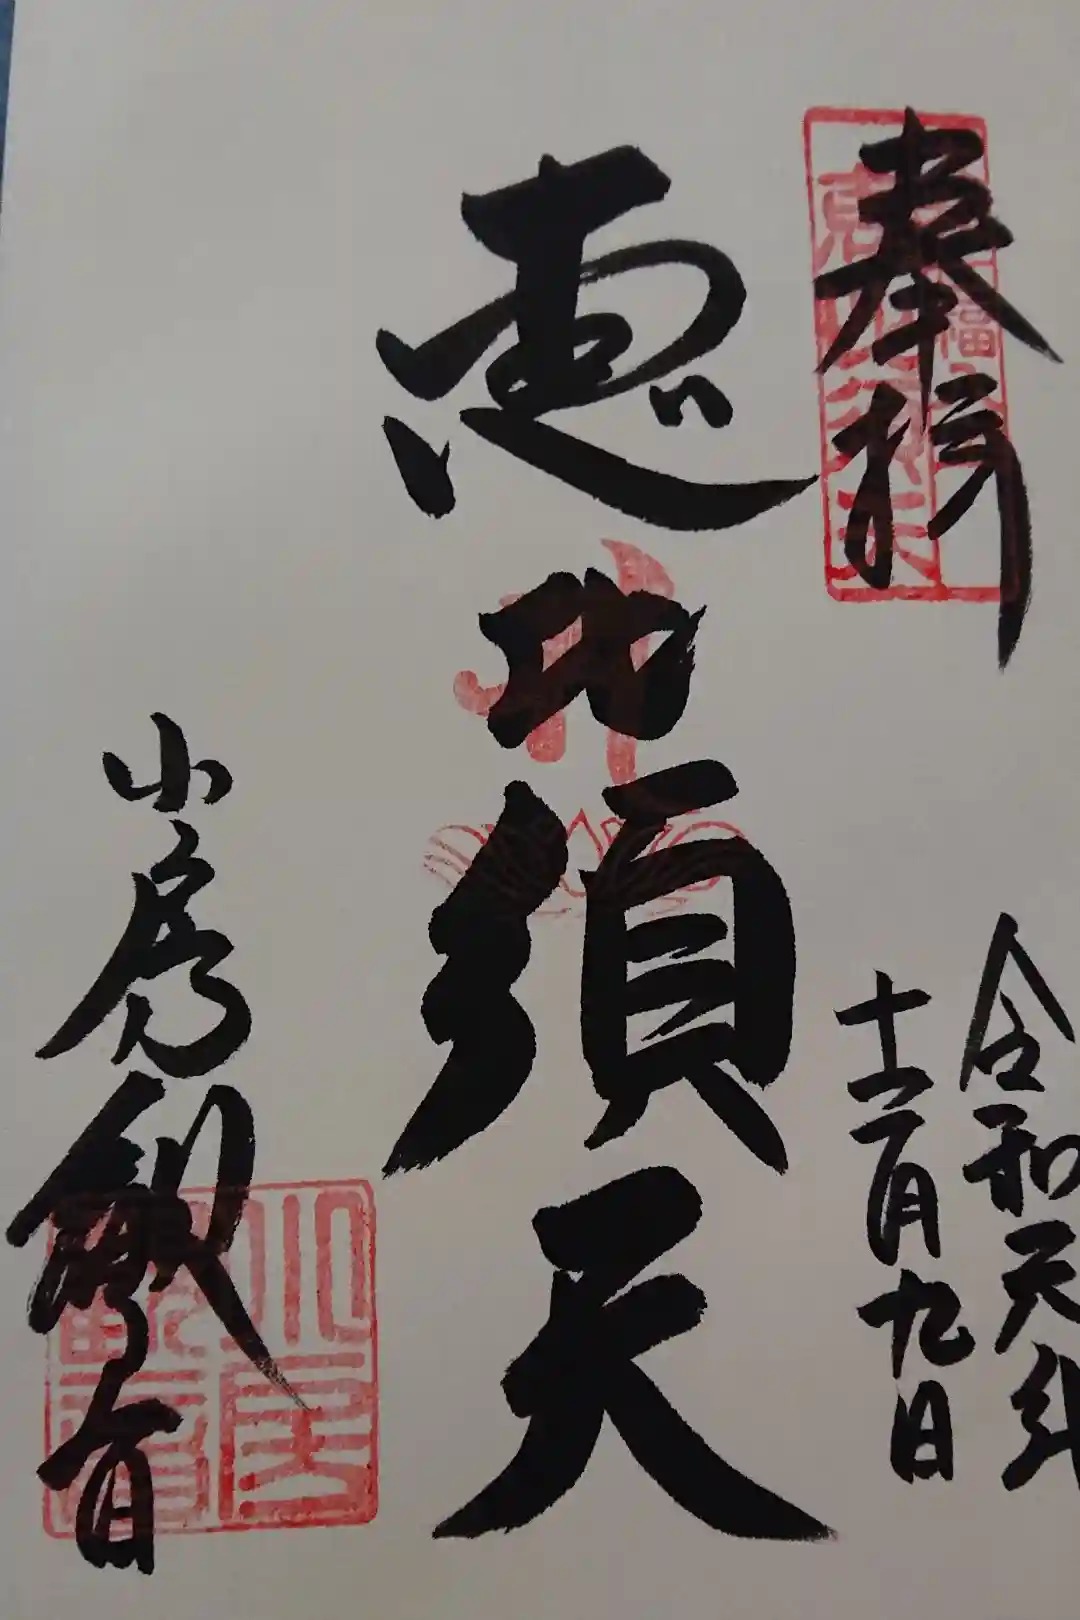 奉拝
令和元年
十二月九日
恵比須天
小房観音
小房
観音